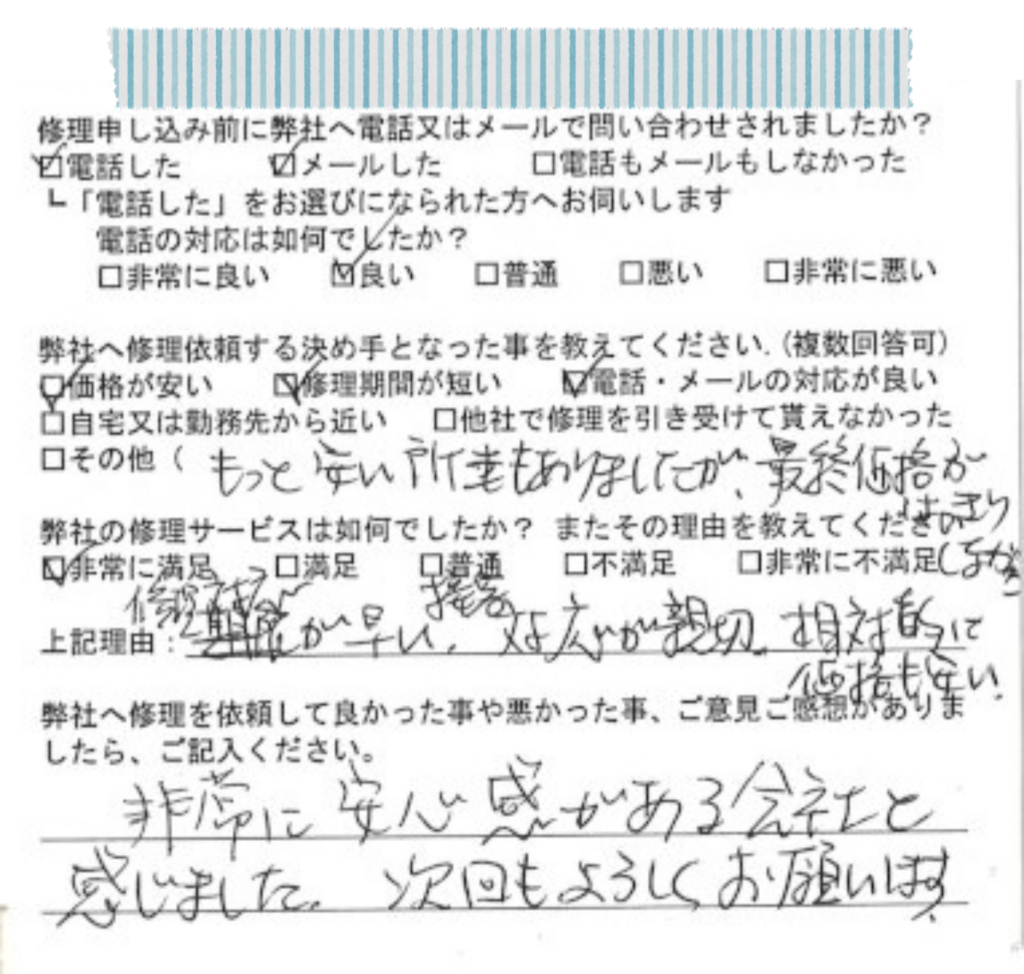 修理申し込み前に弊社へ電話又はメールで問い合わせされましたか?
☑電話した ☑メールした □電話もメールもしなかった
┗「電話した」をお選びになられた方へお伺いします
電話の対応は如何でしたか?
□非常に良い ☑良い □普通 □悪い □非常に悪い
弊社へ修理依頼する決め手となった事を教えてください.(複数回答可)
☑価格が安い ☑修理期間が短い ☑電話・メールの対応が良い
□自宅又は勤務先から近い □他社で修理を引き受けて貰えなかった
□その他( もっと安い所もありましたが、最終価格が
はっきり
弊社の修理サービスは如何でしたか? またその理由を教えてくださ
☑非常に満足 □満足 □普通 □不満足 □非常に不満足
上記理由: が早い、対応が親切、相対的に
価格も安い.
弊社へ修理を依頼して良かった事や悪かった事、ご意見ご感想がありま
したら、ご記入ください。
非常に安心感がある会社と
感じました. 次回もよろしくお願いします.